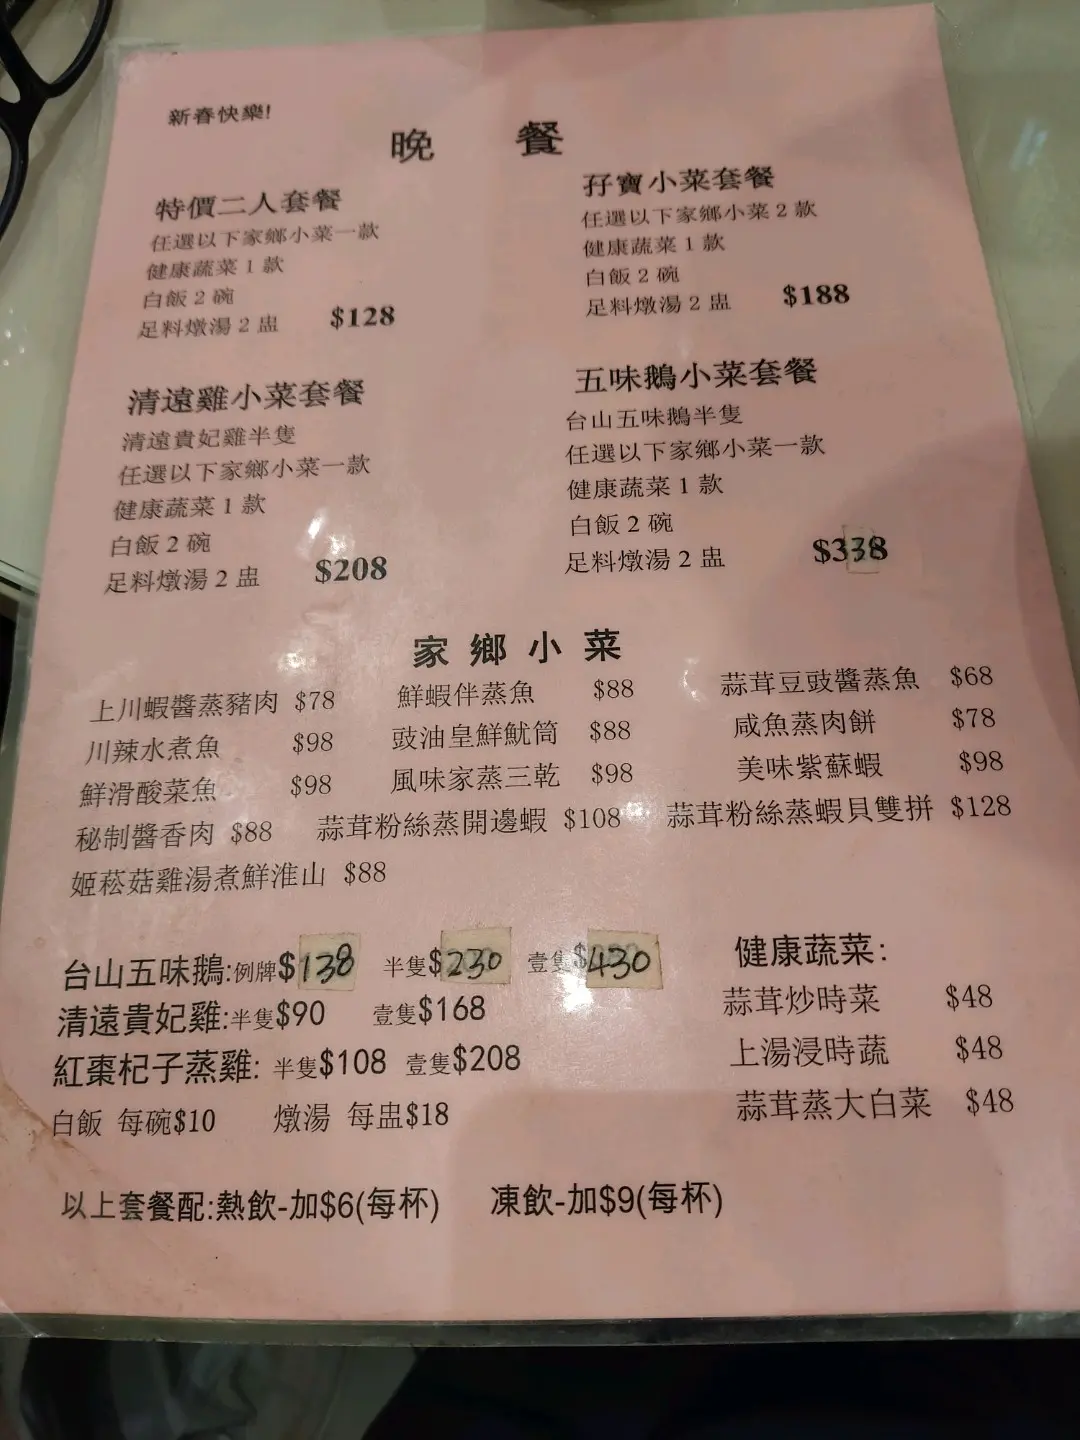 新春快樂!
晚 餐
特價二人套餐
任選以下家鄉小菜一款
健康蔬菜 1 款
白飯 2 碗
足料燉湯 2 盅 $128
孖寶小菜套餐
任選以下家鄉小菜 2 款
健康蔬菜 1 款
白飯 2 碗
足料燉湯 2 盅 $188
清遠雞小菜套餐
清遠貴妃雞半隻
任選以下家鄉小菜一款
健康蔬菜 1 款
白飯 2 碗
足料燉湯 2 盅 $208
五味鵝小菜套餐
台山五味鵝半隻
任選以下家鄉小菜一款
健康蔬菜 1 款
白飯 2 碗
足料燉湯 2 盅 $338
家 鄉 小 菜
上川蝦醬蒸豬肉 $78 鮮蝦伴蒸魚 $88 蒜茸豆豉醬蒸魚 $68
川辣水煮魚 $98 豉油皇鮮魷筒 $88 咸魚蒸肉餅 $78
鮮滑酸菜魚 $98 風味家蒸三乾 $98 美味紫蘇蝦 $98
秘制醬香肉 $88 蒜茸粉絲蒸開邊蝦 $108 蒜茸粉絲蒸蝦貝雙拼 $128
姬菘菇雞湯煮鮮淮山 $88
台山五味鵝:例牌$138 半隻$230 壹隻$430
清遠貴妃雞:半隻$90 壹隻$168
紅棗杞子蒸雞: 半隻$108 壹隻$208
白飯 每碗$10 燉湯 每盅$18
健康蔬菜:
蒜茸炒時菜 $48
上湯浸時蔬 $48
蒜茸蒸大白菜 $48
以上套餐配:熱飲-加$6(每杯) 凍飲-加$9(每杯)